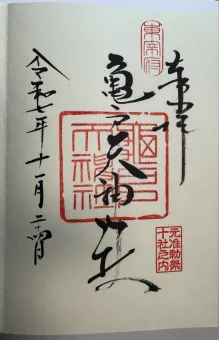 奉拝
東宰府
亀戸天神社
亀戸天神社
元准勅祭
十社之内
令和七年十一月二十四日